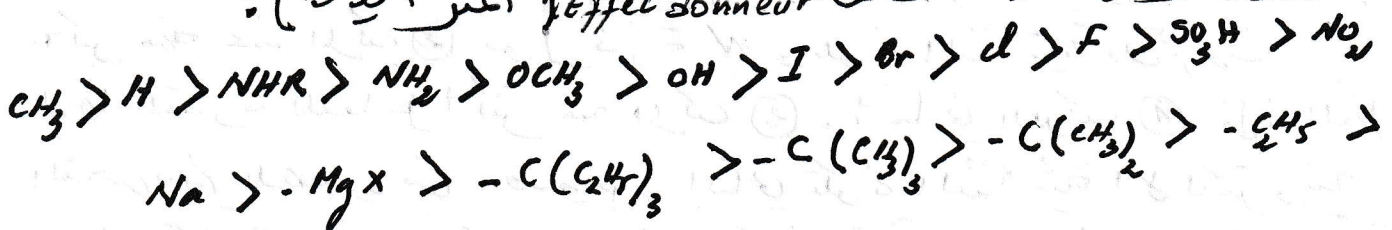 l'Effet donneur
CH₃ > H > NHR > NH₂ > OCH₃ > OH > I > Br > Cl > F > SO₃H > NO₂
Na > -MgX > -C(C₂H₅)₃ > -C(CH₃)₃ > -C(CH₃)₂ > -C₂H₅ >